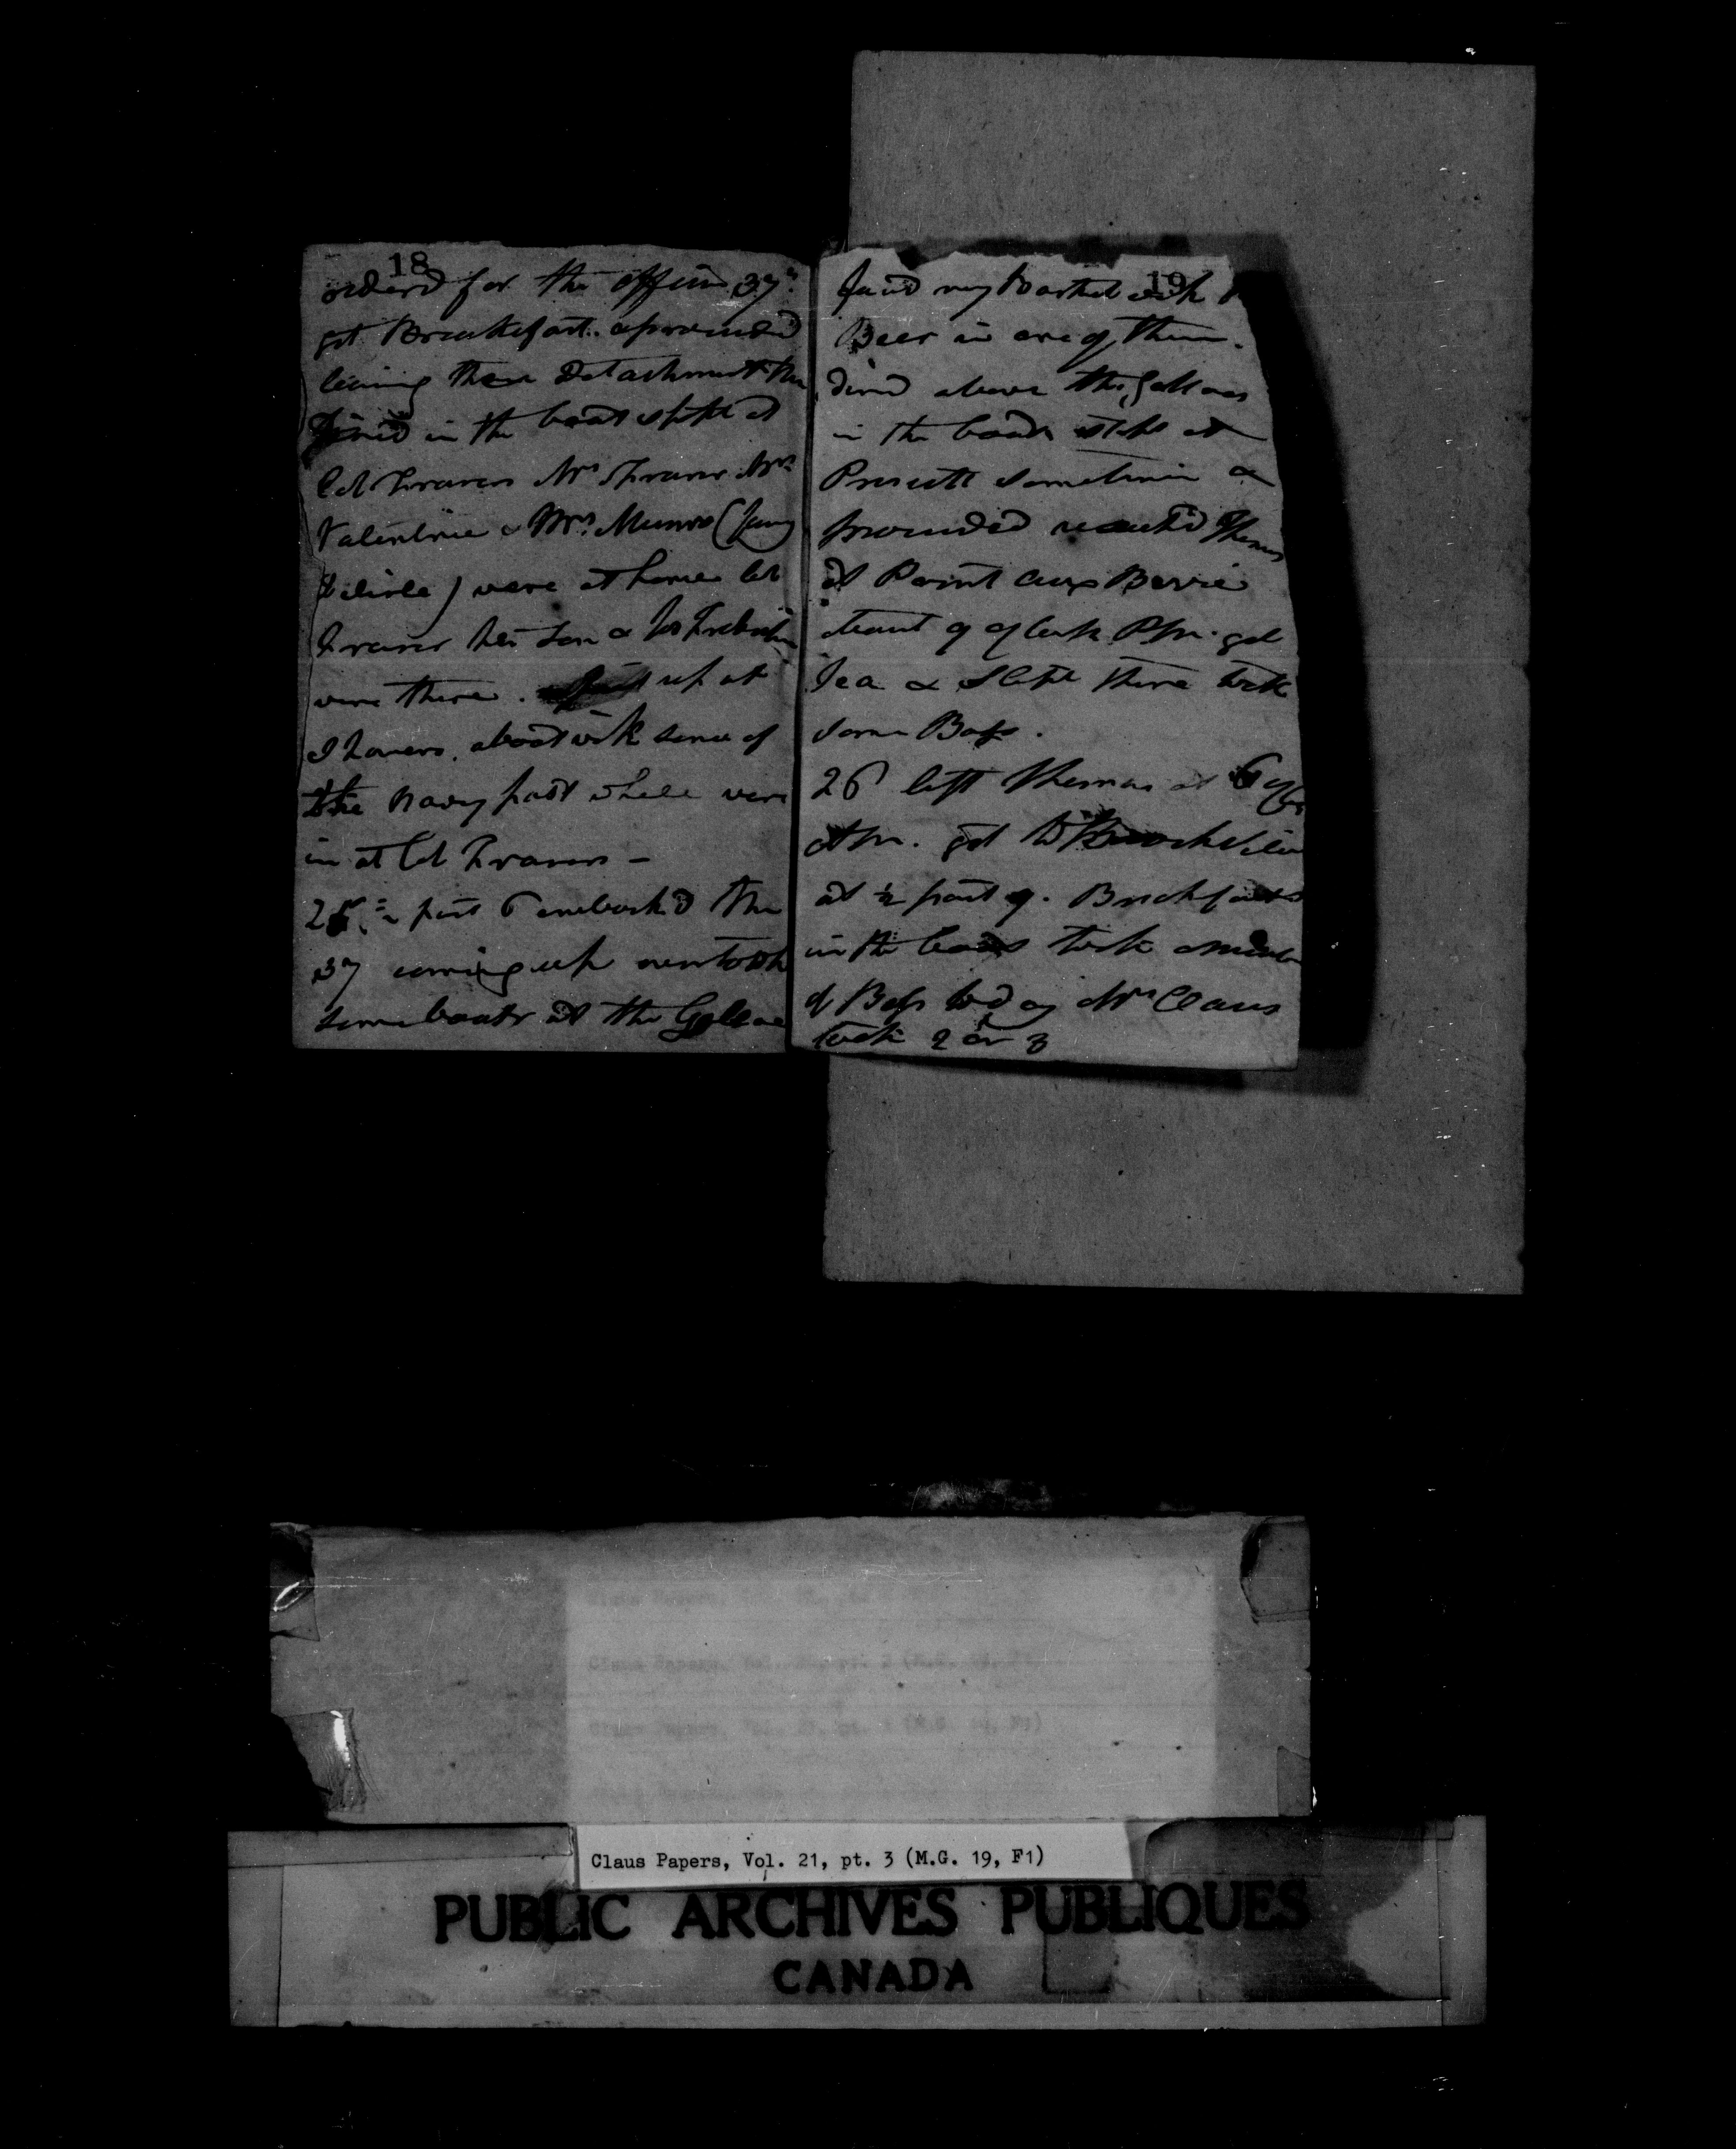 18
orderd for the officers 37th
got Breakfast. & proceeded
leaving the Detachment the
Dined in the boat slept at
Col Frasers Mrs Fraser Mrs
Valentine & Mrs Munro (
) were at home Col
Fraser his son &
were there. up at
aboat with some of
the Navy past whele were
in at Col Frasers -
25. ½ past 6 embark'd the
37 coming up overtook
some boats at the Gallows
19
found my Basket with
Beer in one of them.
dined above the Gallows
in the boats stopt at
Prescott sometime &
proceeded reach'd Thomas
at Point aux Barrie
about 9 oClock PM. got
Tea & Slept there took
some Bass.
26 left Thomas at 6
AM. got to Brockville
at ½ past 9. Breakfasted
in the boats took a number
of Bass today Mrs Claus
took 2 or 3
Claus Papers, Vol. 21, pt. 3 (M.G. 19, F1)
PUBLIC ARCHIVES PUBLIQUES
CANADA